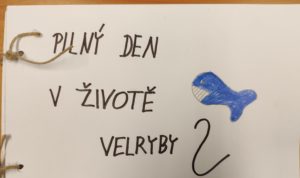 PILNÝ DEN
V ŽIVOTĚ
VELRYBY 2